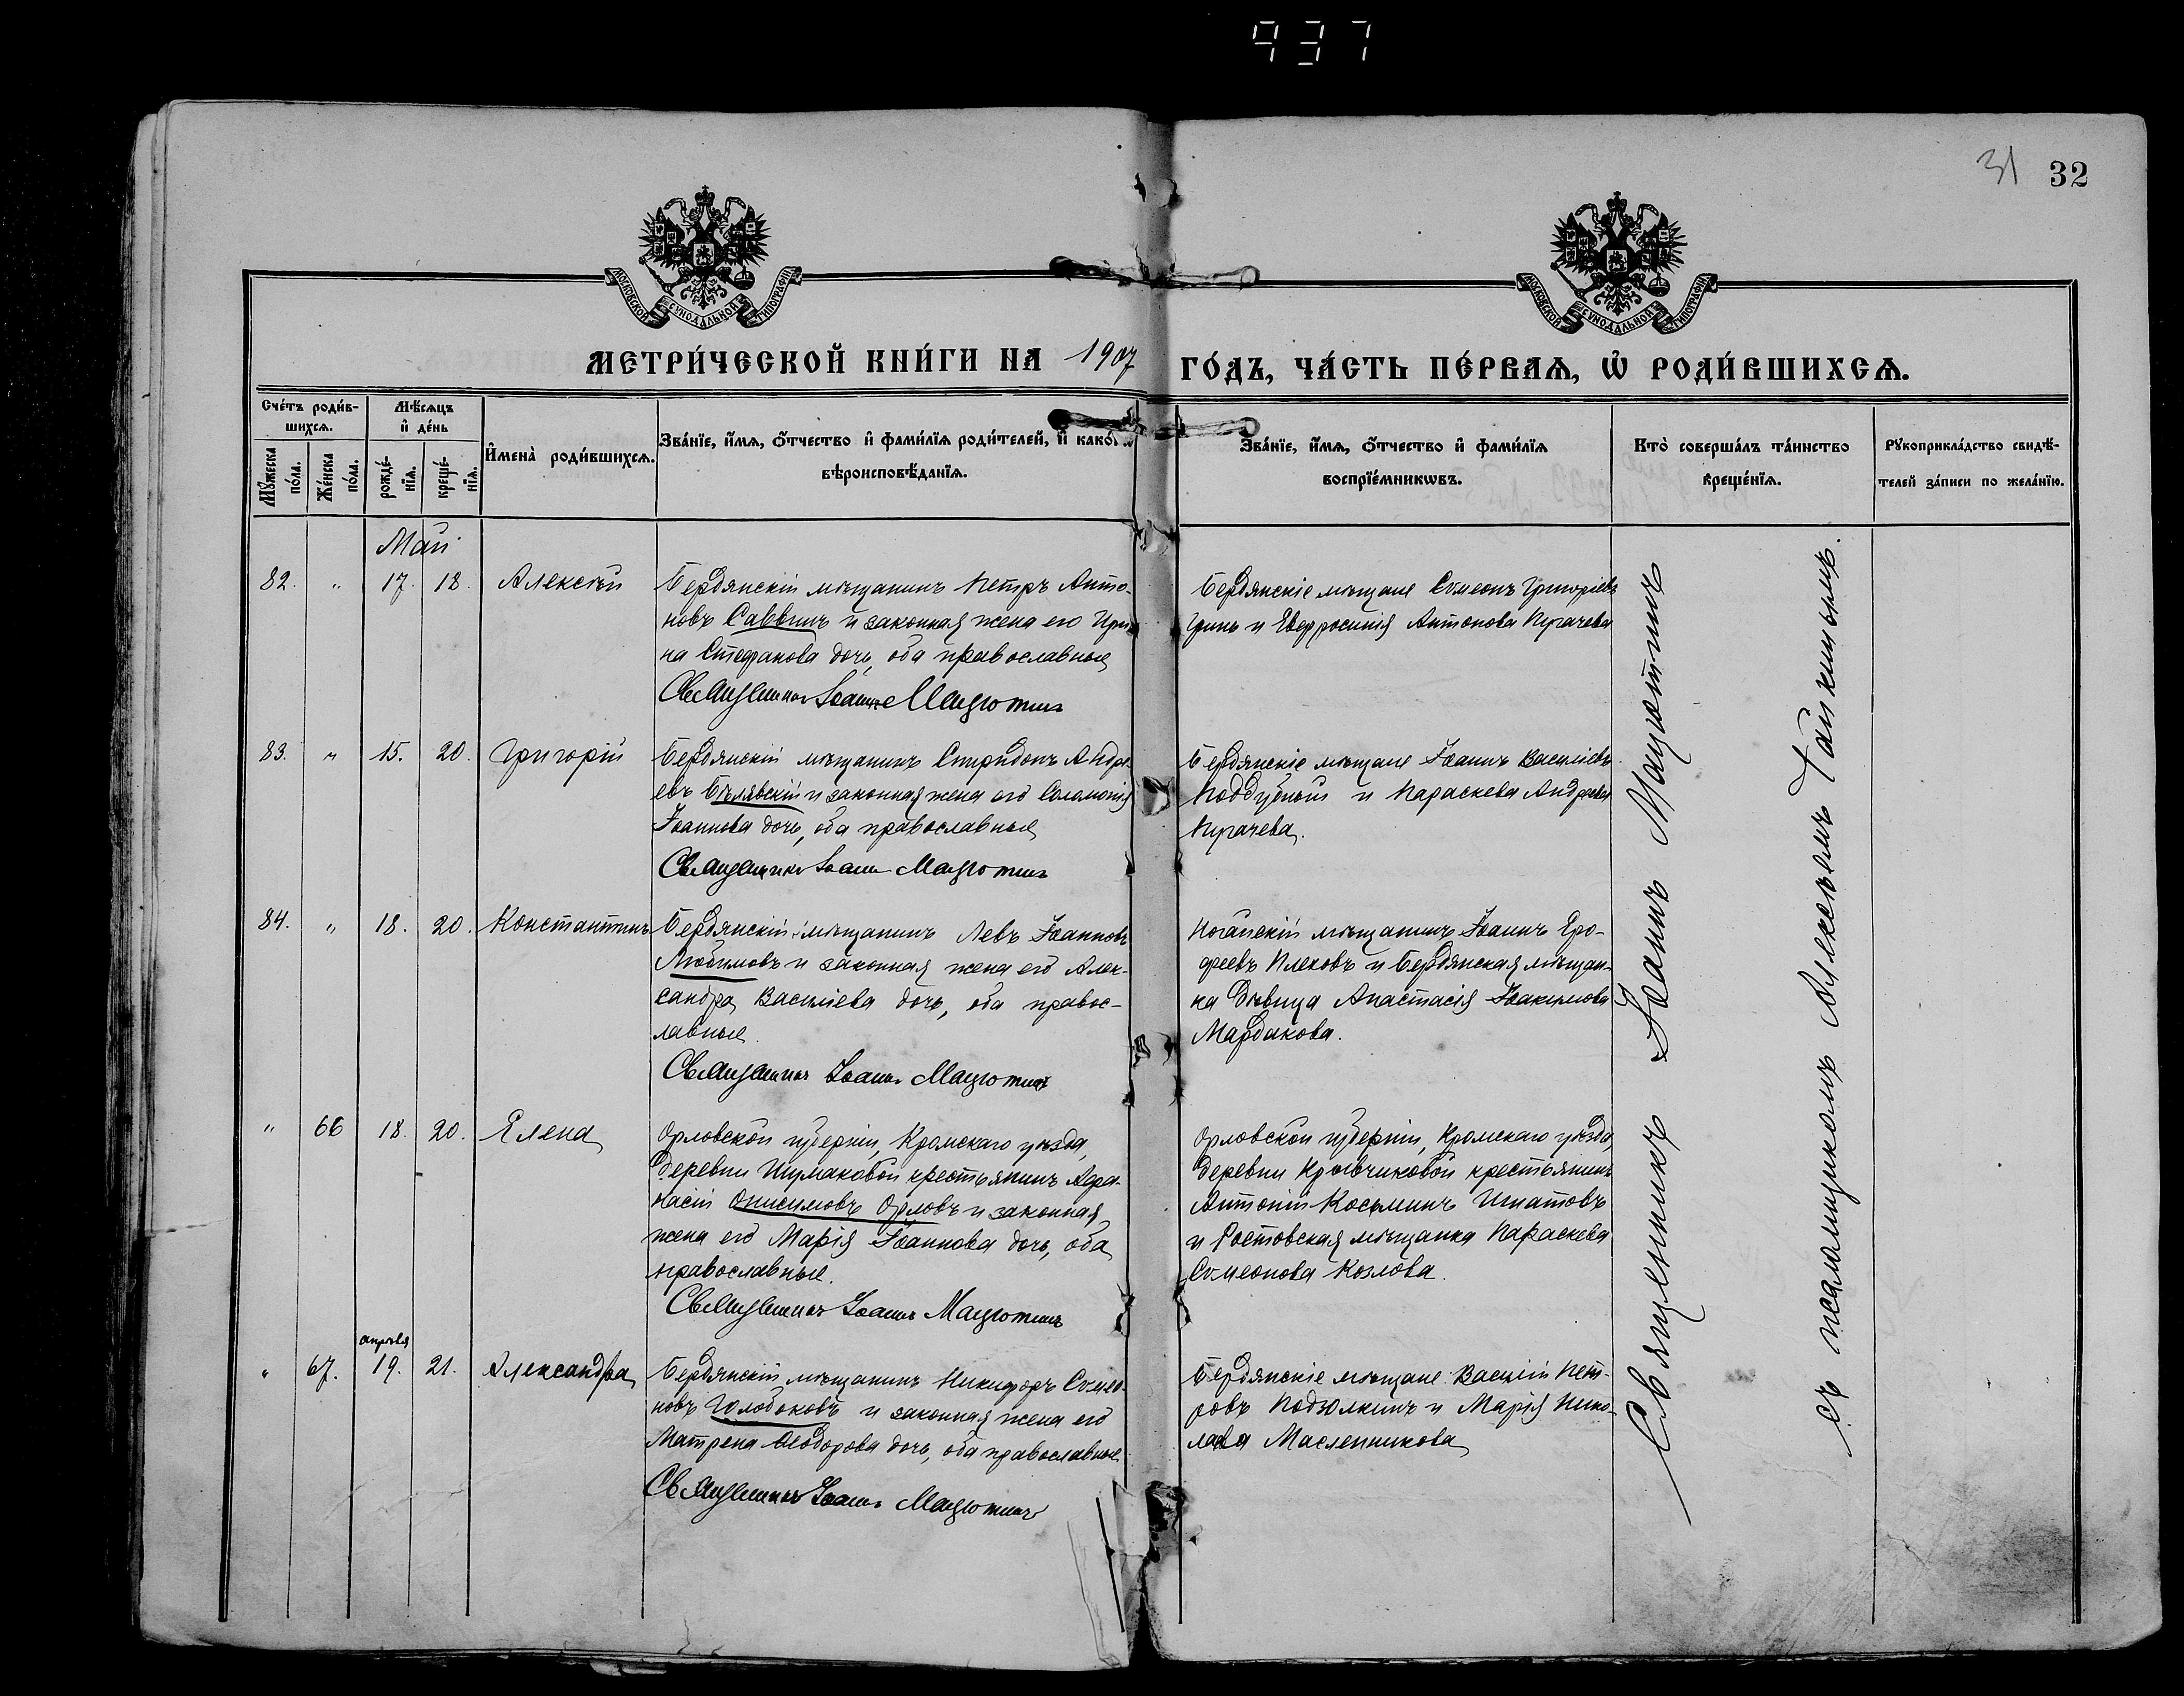 937
31 32
МОСКОВСКОЙ СѴНОДАЛЬНОЙ ТИПОГРАФІИ
МОСКОВСКОЙ СѴНОДАЛЬНОЙ ТИПОГРАФІИ
МЕТРИ́ЧЕСКОЙ КНИ́ГИ НА 1907 ГО́ДЪ, ЧА́СТЬ ПЕ́РВАѦ, Ѽ РОДИ́ВШИХСѦ.
Сче́тъ роди́в-
шихсѧ.
Мѣ́сѧцъ
и҆ де́нь
Мꙋ́жеска по́ла.
Же́нска по́ла.
рожде́-нїѧ.
креще́-нїѧ.
И҆мена̀ роди́вшихсѧ.
Зва́нїе, и҆́мѧ, ѻ҆́тчество и҆ фами́лїѧ роди́телей, и҆ како́гѡ
вѣроисповѣ́данїѧ.
Зва́нїе, и҆́мѧ, ѻ҆́тчество и҆ фами́лїѧ
воспрїе́мникѡвъ.
Кто̀ соверша́лъ та́инство
креще́нїѧ.
Рꙋкоприкла́дство свидѣ́-
телей за́писи по жела́нїю.
Май
82. " 17. 18. Алексѣй
Бердянскій мѣщанинъ Петръ Анто-
новъ Саввинъ и законная жена его Ири-
на Стефанова дочь, оба православные
Священникъ Іоаннъ Мацютинъ
Бердянскіе мѣщане Сѵмеонъ Григоріевъ
Гринь и Евфросинія Антонова Пугачева
83. " 15. 20. Григорій
Бердянскій мѣщанинъ Спиридонъ Андре-
евъ Бѣлявскій и законная жена его Соломонія
Іоаннова дочь, оба православные
Священникъ Іоаннъ Мацютинъ
Бердянскіе мѣщане Іоаннъ Василіевъ
Поддубный и Параскева Андреева
Пугачева.
84. " 18. 20. Константинъ
Бердянскій мѣщанинъ Левъ Іоанновъ
Любимовъ и законная жена его Алек-
сандра Василіева дочь, оба правос-
лавные.
Священникъ Іоаннъ Мацютинъ
Ногайскій мѣщанинъ Іоаннъ Еро-
феевъ Плеховъ и Бердянская мѣщан-
ка дѣвица Анастасія Іоакимова
Мардакова.
" 66 18. 20. Елена
Орловской губерніи, Кромскаго уѣзда,
деревни Шумаковой крестьянинъ Афа-
насій Онисимовъ Орловъ и законная
жена его Марія Іоаннова дочь, оба
православные.
Священникъ Іоаннъ Мацютинъ
Орловской губерніи, Кромскаго уѣзда,
деревни Кривчиковой крестьянинъ
Антоній Косьминъ Игнатовъ
и Ростовская мѣщанка Параскева
Сѵмеонова Козлова.
апрѣля
" 67. 19. 21. Александра
Бердянскій мѣщанинъ Никифоръ Сѵмео-
новъ Голобоковъ и законная жена его
Матрена Ѳеодорова дочь, оба православные
Священникъ Іоаннъ Мацютинъ
Бердянскіе мѣщане Василій Пет-
ровъ Подзолкинъ и Марія Нико-
лаева Масленникова
Священникъ Іоаннъ Мацютинъ
съ псаломщикомъ Алексѣемъ